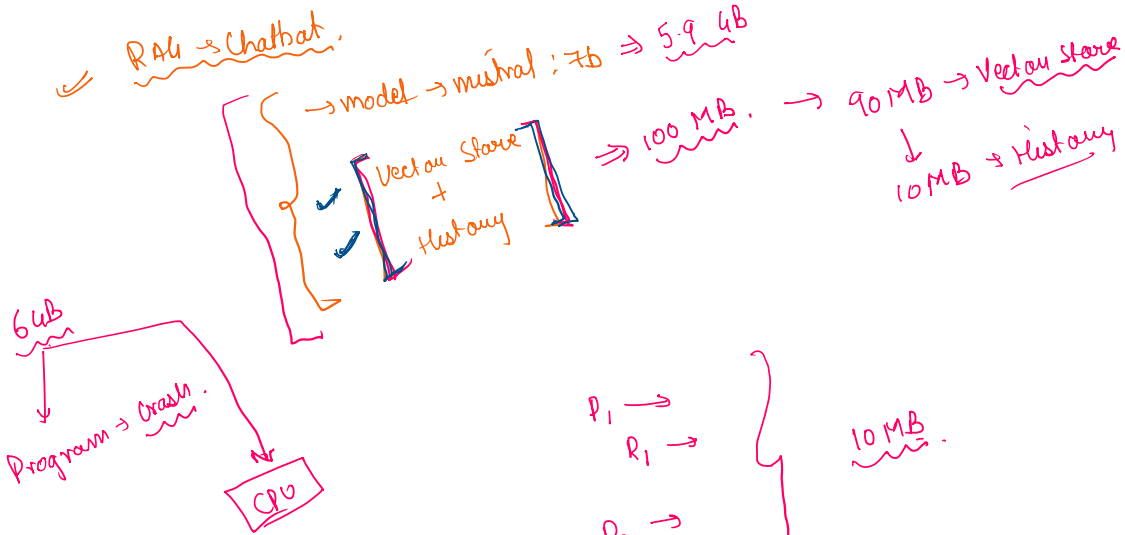 RAG → Chatbot.
→ model → mistral : 7b ⇒ 5.9 GB
[ Vector Store + History ] ⇒ 100 MB. → 90 MB → Vector Store
↓
10 MB → History
6 GB
Program → Crash.
CPU
P1 →
R1 →
→
10 MB.